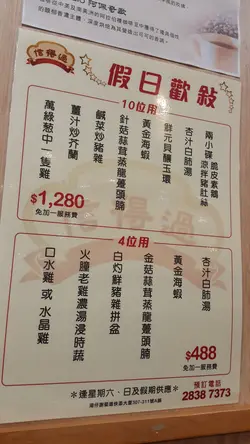 信得過
假日歡敍
10位用
兩小碟 脆皮素鵝 涼拌豬肚絲
杏汁白肺湯
鮮元貝釀玉環
黃金海蝦
針菇蒜茸蒸龍躉頭腩
鹹菜炒豬雜
薑汁炒芥蘭
萬綠葱中一隻雞
$1,280
免加一服務費
4位用
杏汁白肺湯
黃金海蝦
金菇蒜茸蒸龍躉頭腩
白灼鮮豬雜拼盆
火腫老雞濃湯浸時蔬
口水雞 或 水晶雞
$488
免加一服務費
*逢星期六、日及假期供應*
預訂電話
2838 7373